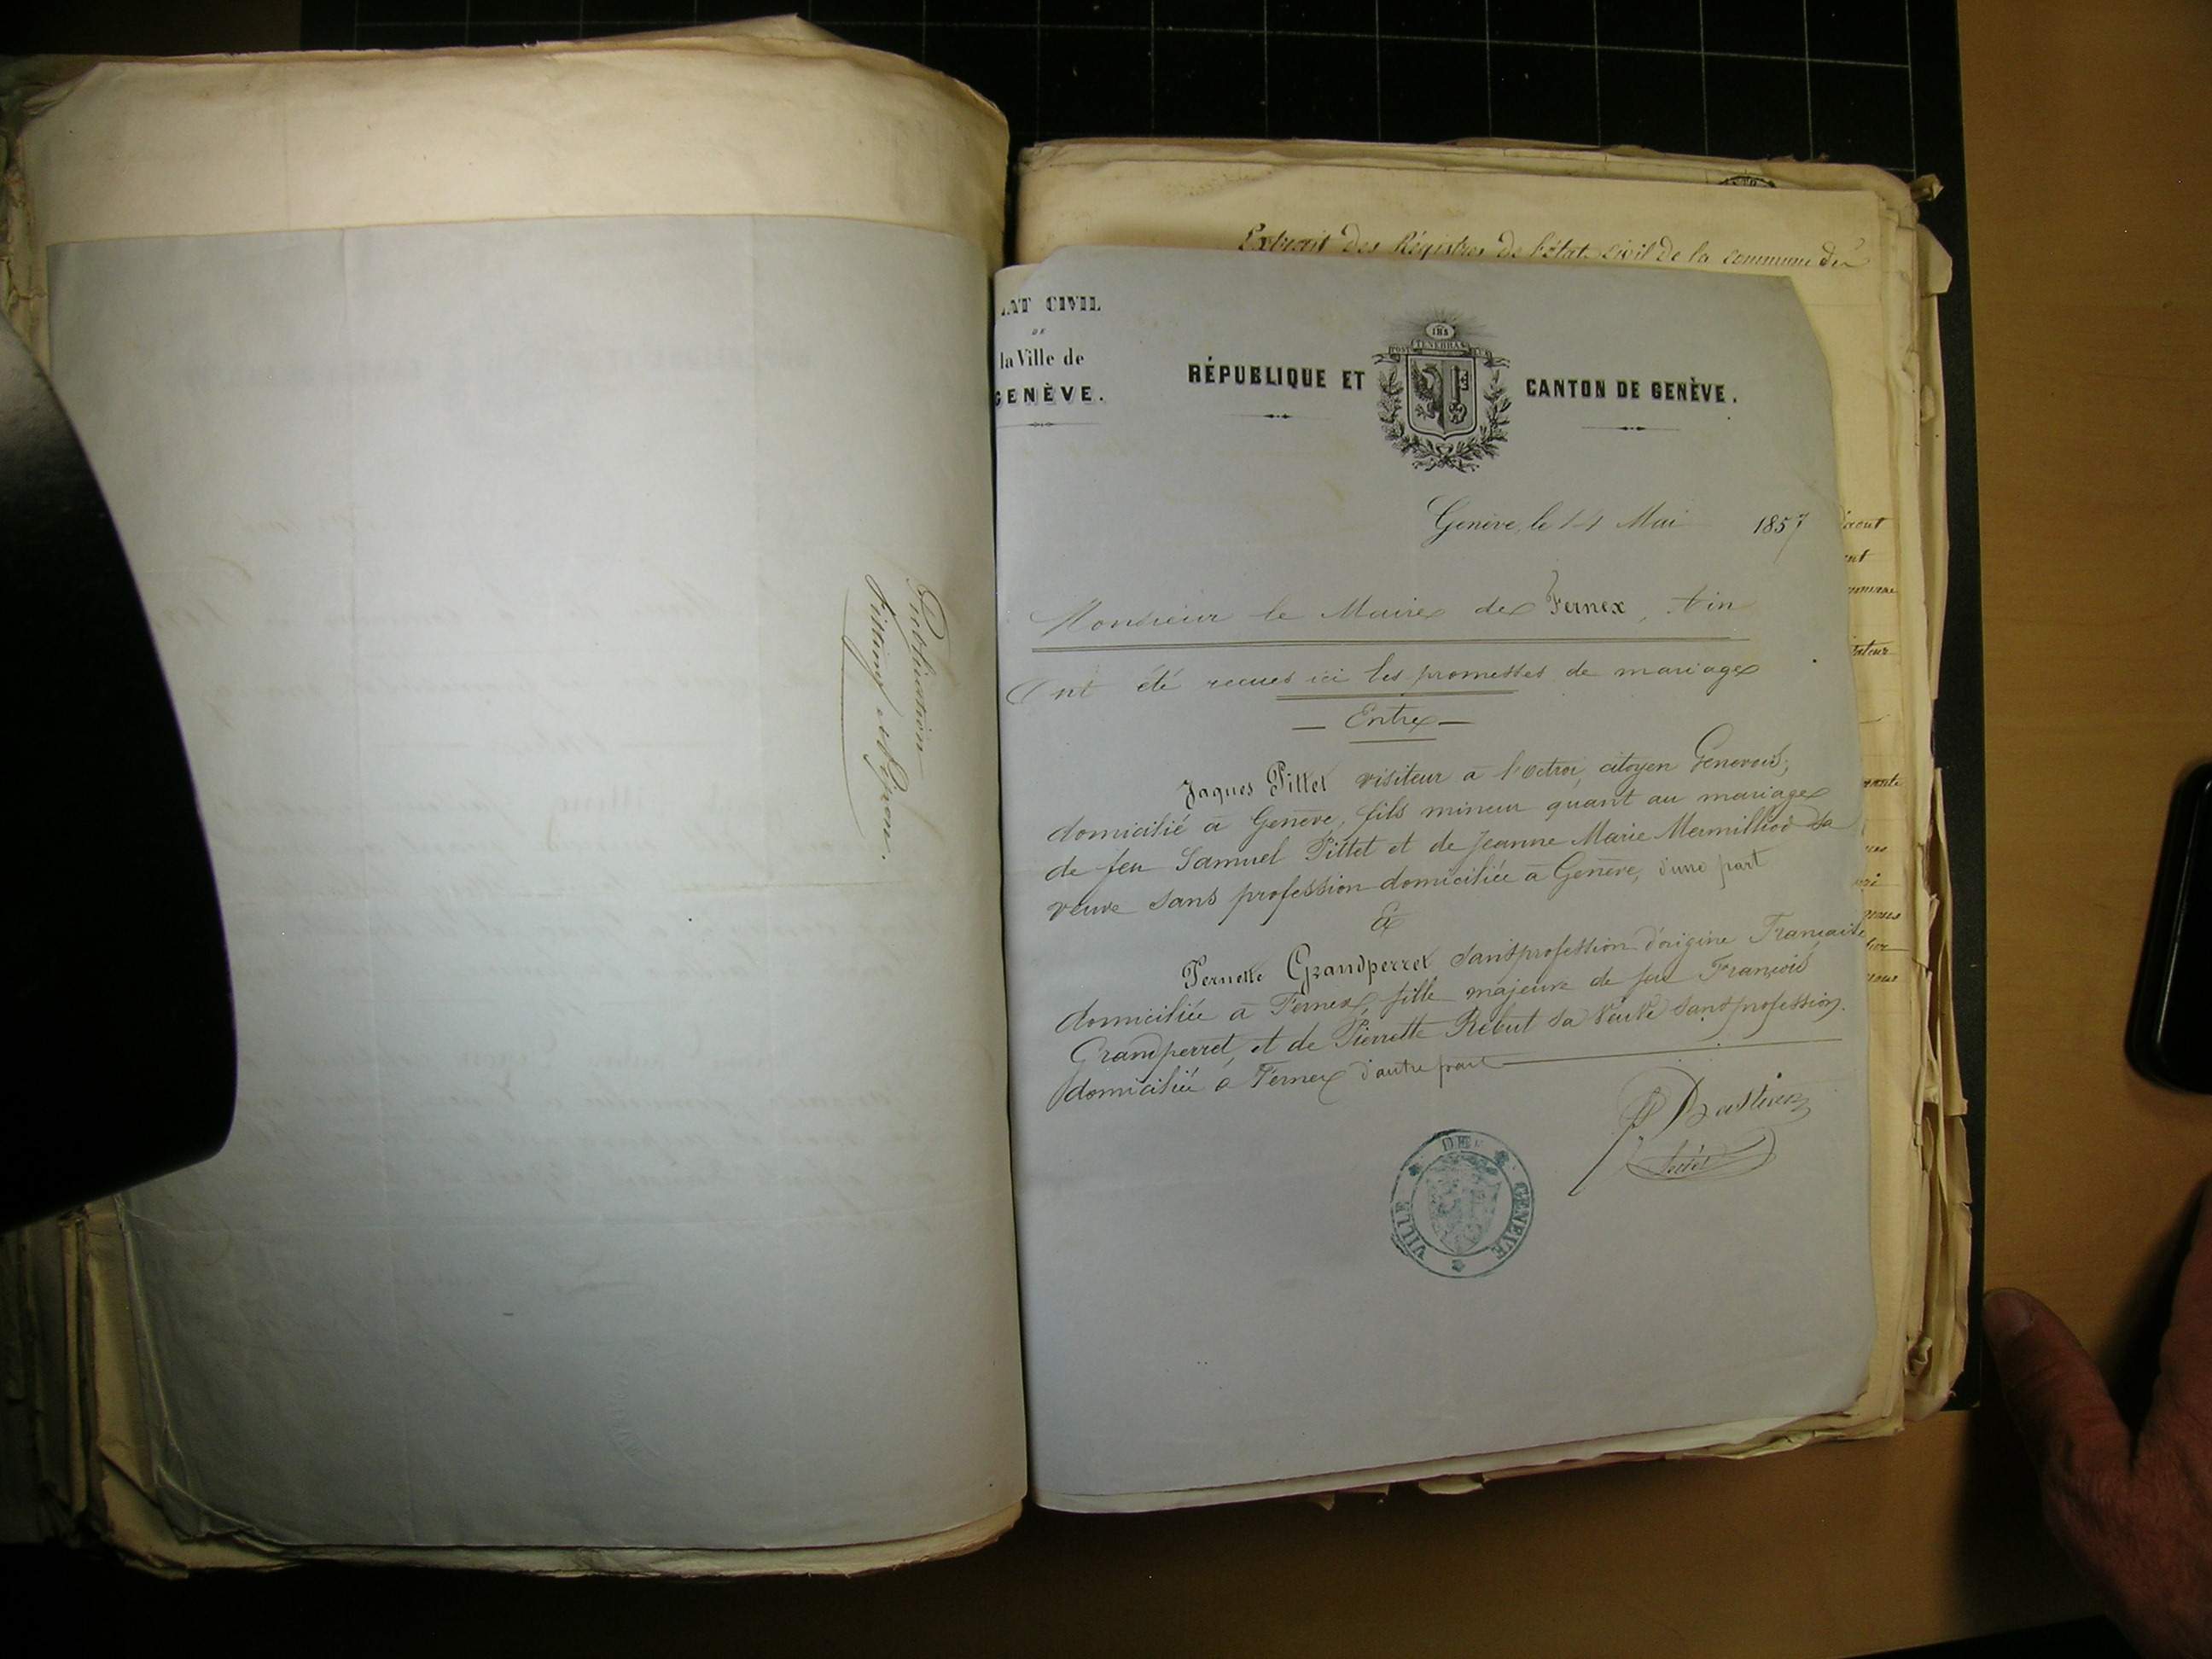 Publication
Extrait des Régistres de l'état civil de la commune de
ÉTAT CIVIL
DE
la Ville de
GENÈVE.
RÉPUBLIQUE ET CANTON DE GENÈVE.
IHS
POST TENEBRAS LUX
Genève, le 14 Mai 1857
Monsieur le Maire de Fernex, Ain
Ont été recues ici les promesses de mariage
— Entre —
Jaques Pittet visiteur à l'octroi, citoyen Genevois,
domicilié à Genève, fils mineur quant au mariage
de feu Samuel Pittet et de Jeanne Marie Mermilliod sa
veuve sans profession domiciliée à Genève, d'une part
&
Pernette Grandperret sans profession d'origine Française
domiciliée à Fernex, fille majeure de feu François
Grandperret, et de Pierrette Rebut sa veuve sans profession
domiciliée à Fernex d'autre part
Secrét
VILLE DE GENÈVE